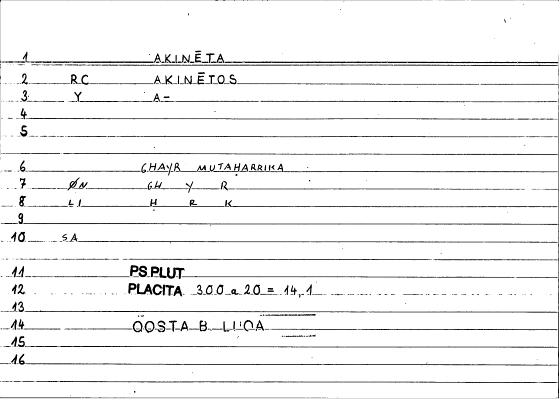 1 AKINĒTA
2 RC AKINĒTOS
3 Y A-
4
5
6 GHAYR MUTAḤARRIKA
7 ØN GH Y R
8 LI Ḥ R K
9
10 SA
11 PS.PLUT
12 PLACITA 300 a 20 = 14,1
13
14 QOSTA B. LUQA
15
16